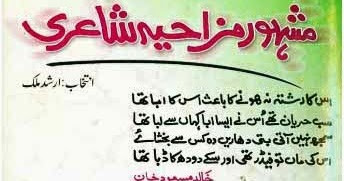 مشہور مزاحیہ شاعری
انتخاب: ارشد ملک
اس کا رشتہ نہ ہونے کا باعث اس کا ابا تھا
سب حیران تھے اُس نے ایسا ابا کہاں سے لبا تھا
سمجھ نہیں آتی بتی دھاریں وہ کس سے بخشائے
اس کی ماں تو فیڈر تھی اور سکے دودھ کا ڈبا تھا
خالد مسعود خان